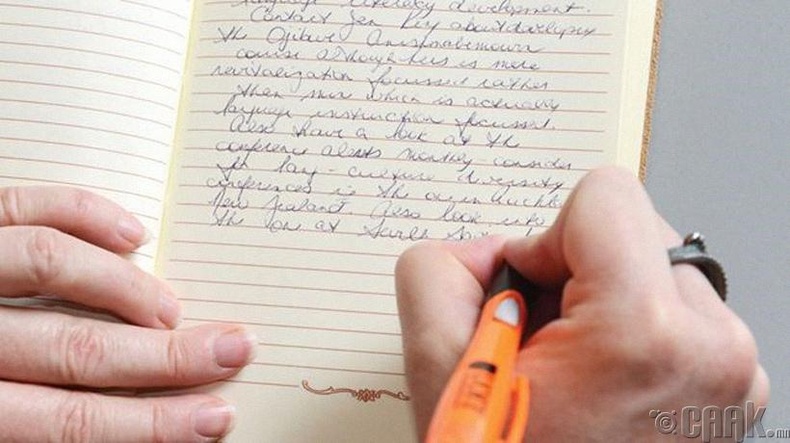 language literacy development.
Contact Jen Key about developing
the Ojibwe Anishinabemowin
course although hers is more
revitalization focussed rather
than mine which is actually
language instruction focussed.
Also have a look at the
conference alerts monthly - consider
for Lang - culture diversity
conferences is the one in Auckland
New Zealand. Also look into
the one at
caak.mn